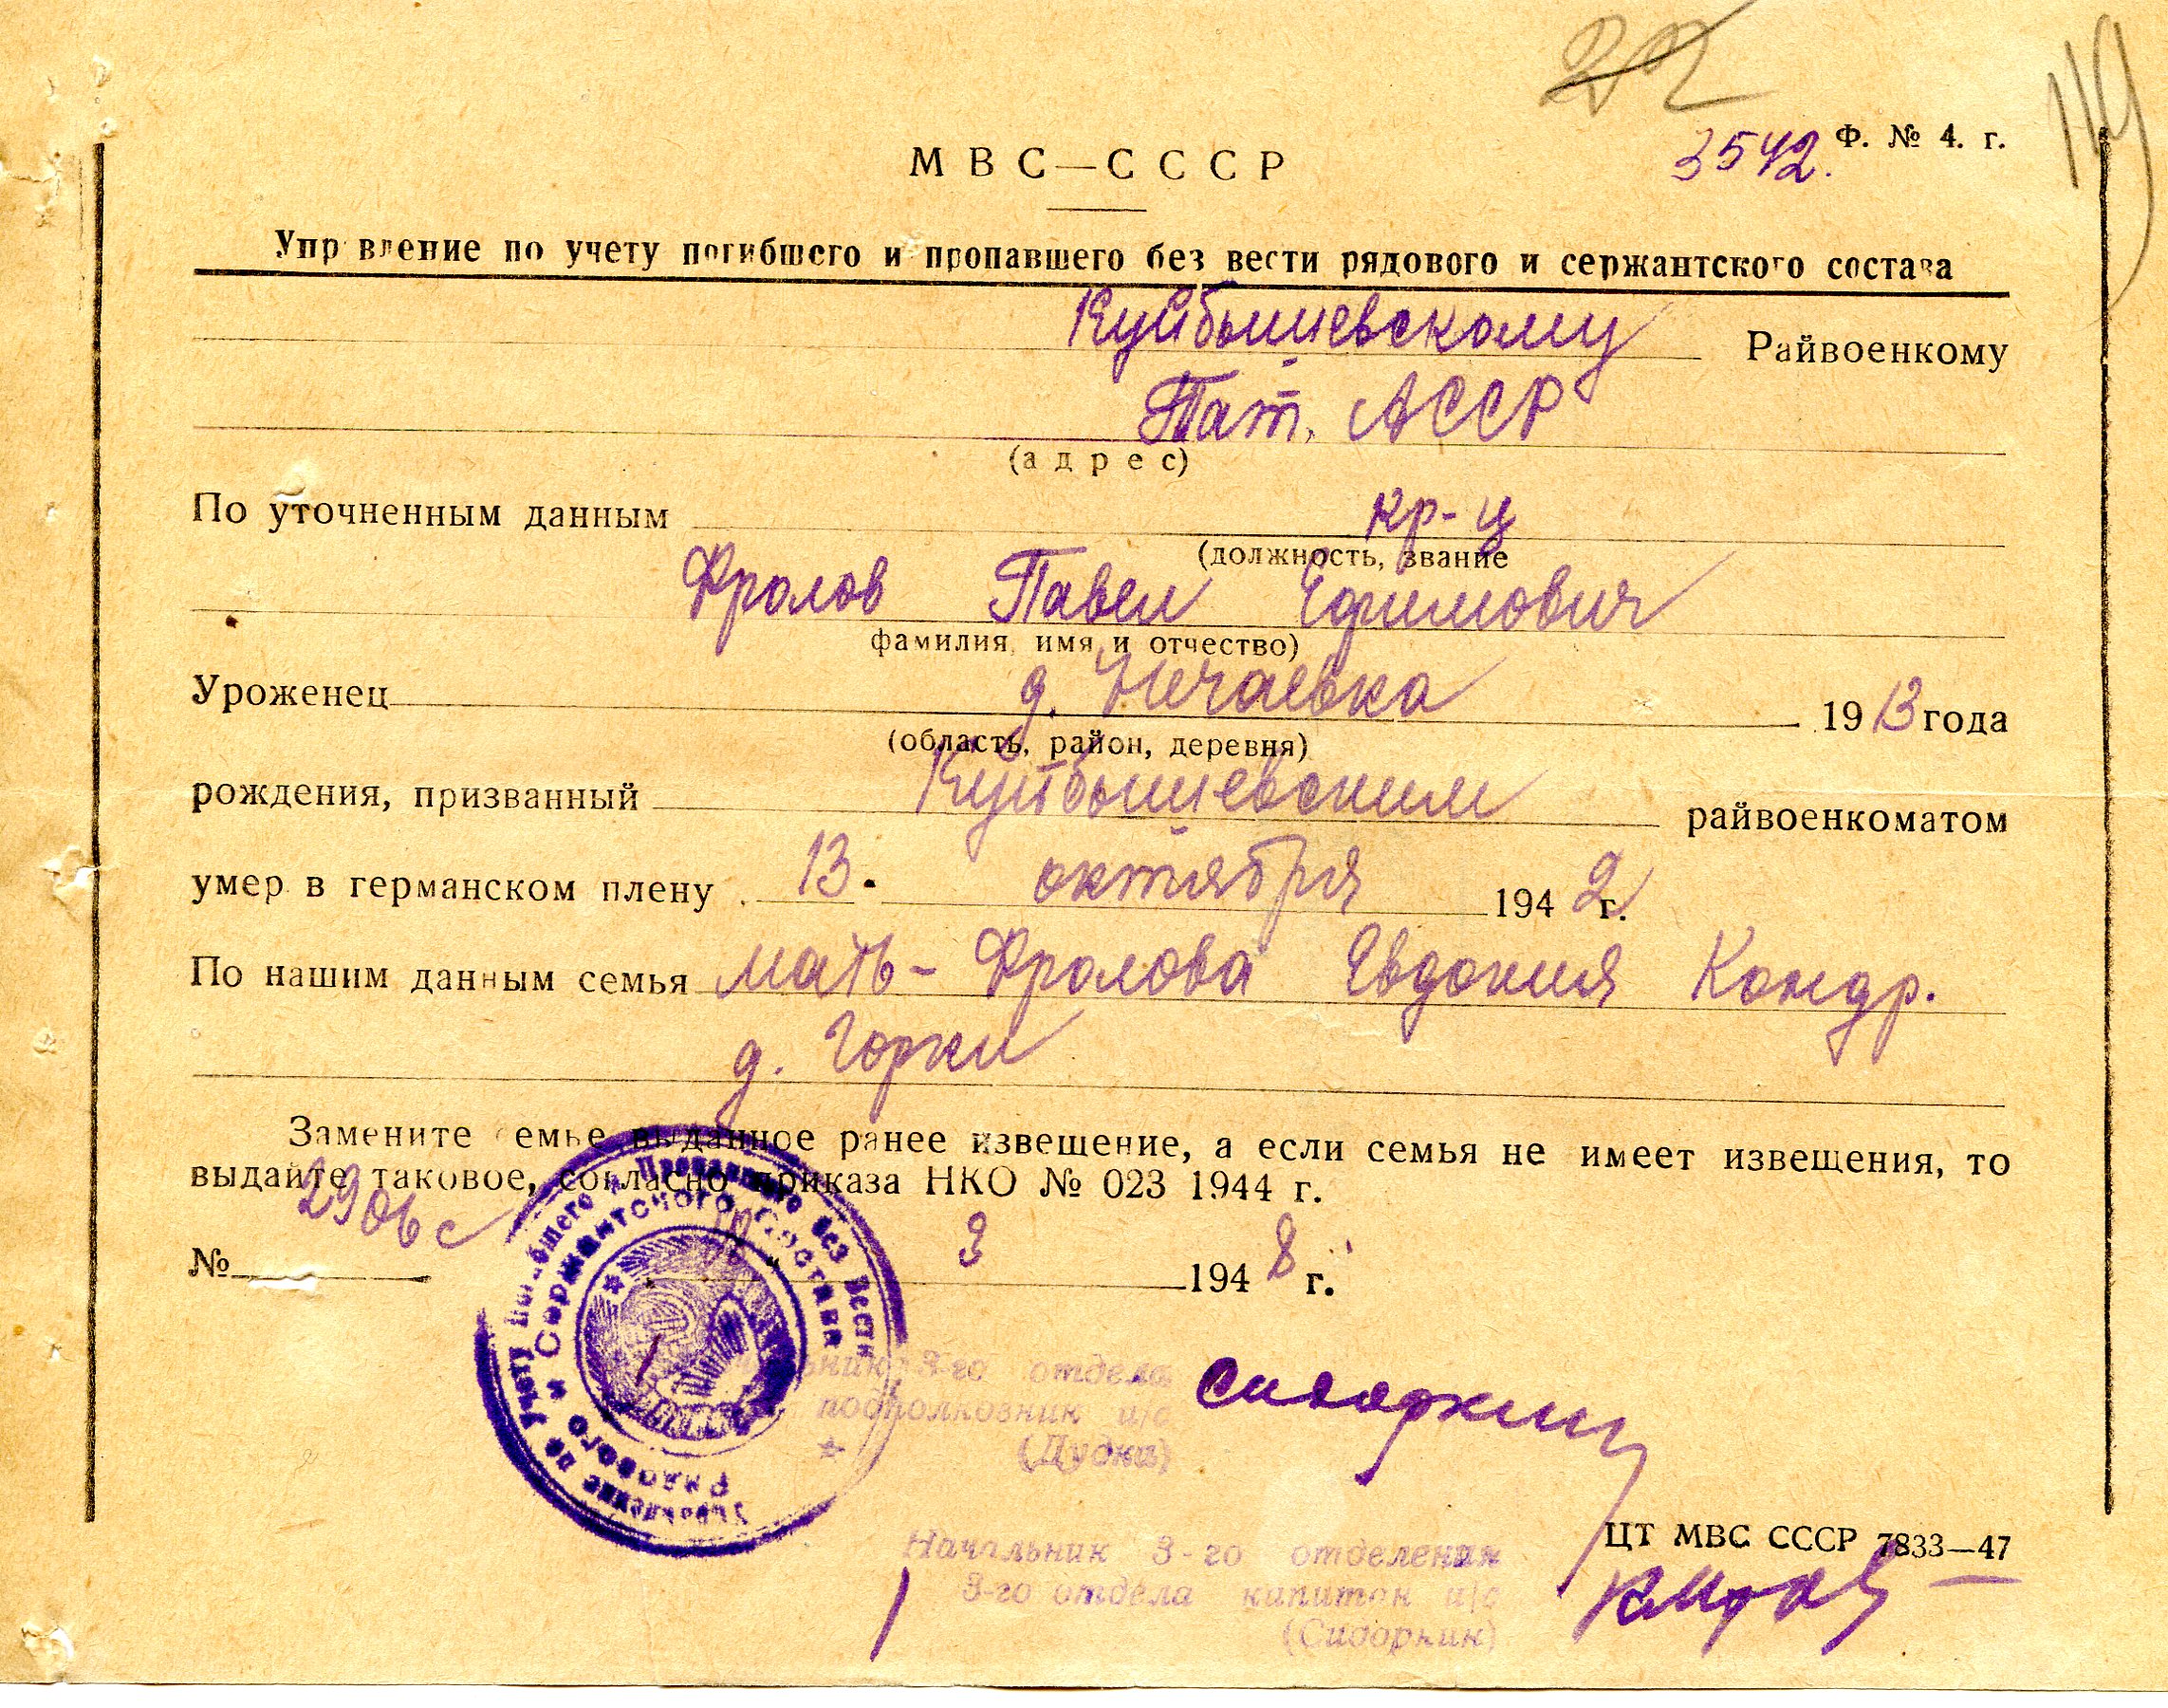 22
119
Ф. № 4. г.
3542.
МВС—СССР
Упр вление по учету погибшего и пропавшего без вести рядового и сержантского состава
Куйбышевскому Райвоенкому
Тат. АССР
(адрес)
По уточненным данным кр-ц
(должность, звание
Фролов Павел Ефимович
фамилия, имя и отчество)
Уроженец д. Нечаевка 1913 года
(область, район, деревня)
рождения, призванный Куйбышевским райвоенкоматом
умер в германском плену 13. октября 1942 г.
По нашим данным семья мать - Фролова Евдокия Кондр.
д. Горки
Замените семье выданное ранее извещение, а если семья не имеет извещения, то
выдайте таковое, согласно приказа НКО № 023 1944 г.
№ 2906с 3 1948 г.
Управление по Учету Погибшего и Пропавшего без Вести
Рядового и Сержантского Состава
Начальник 3-го отдела
подполковник и/с
Сидоркин
Начальник 3-го отделения
3-го отдела капитан и/с
(Сидоркин)
ЦТ МВС СССР 7833—47